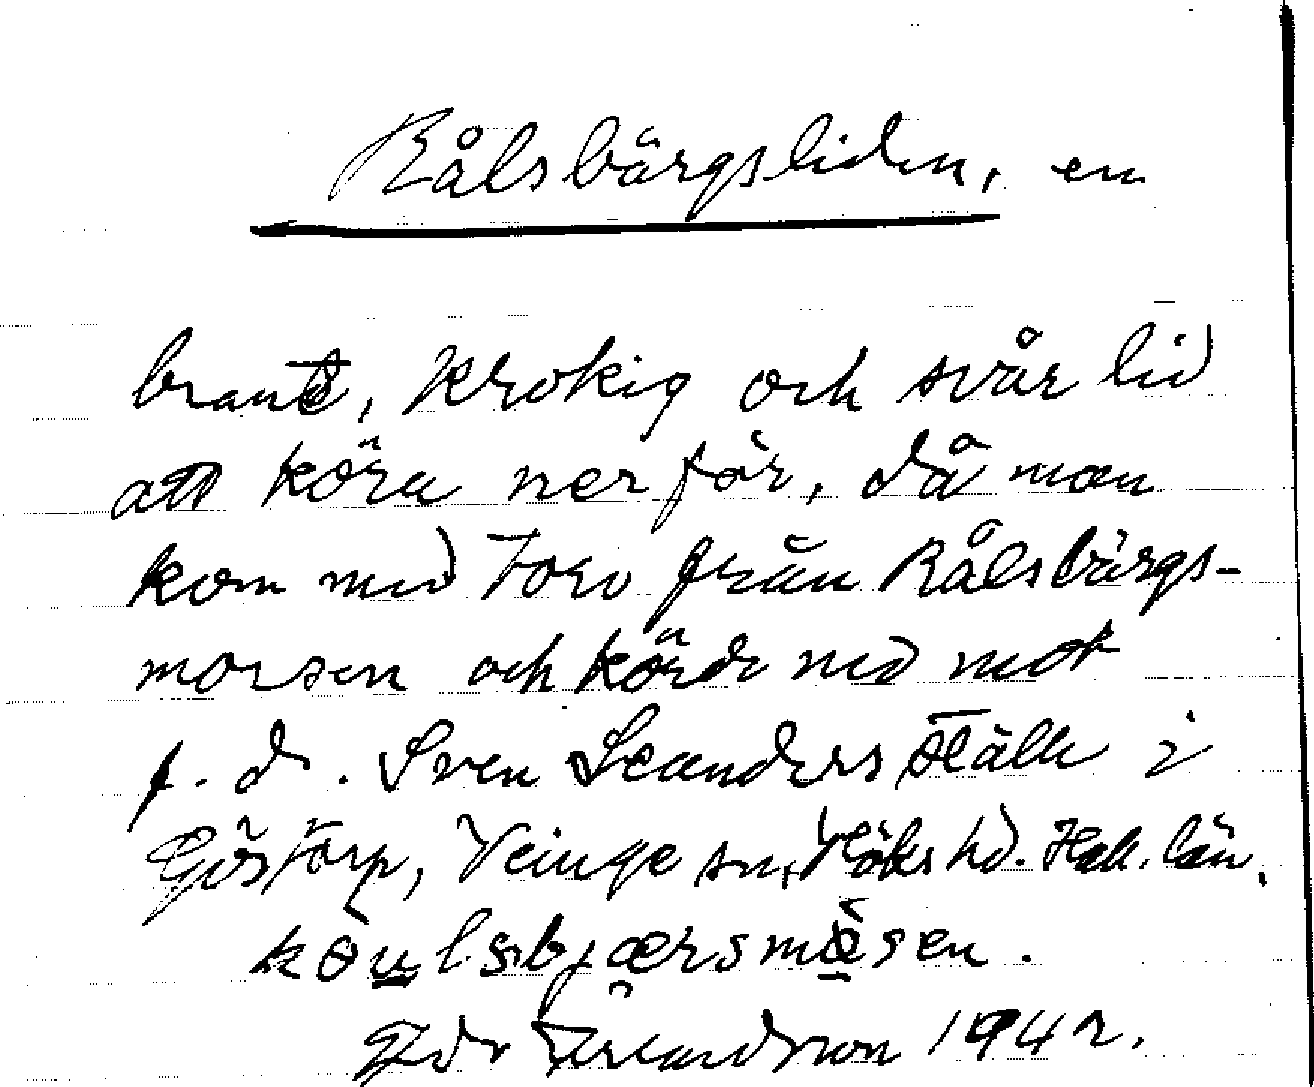 Kålsbärgsliden, en
brant, krokig och svår lid
att köra ner för, då man
kom med torv från Kålsbärgs-
morsen och körde ned mot
f. d. Sven Leanders ställe i
Göstorp, Veinge sn, Höks hd. Hall. län.
köulsbjærsmåsen.
1942.